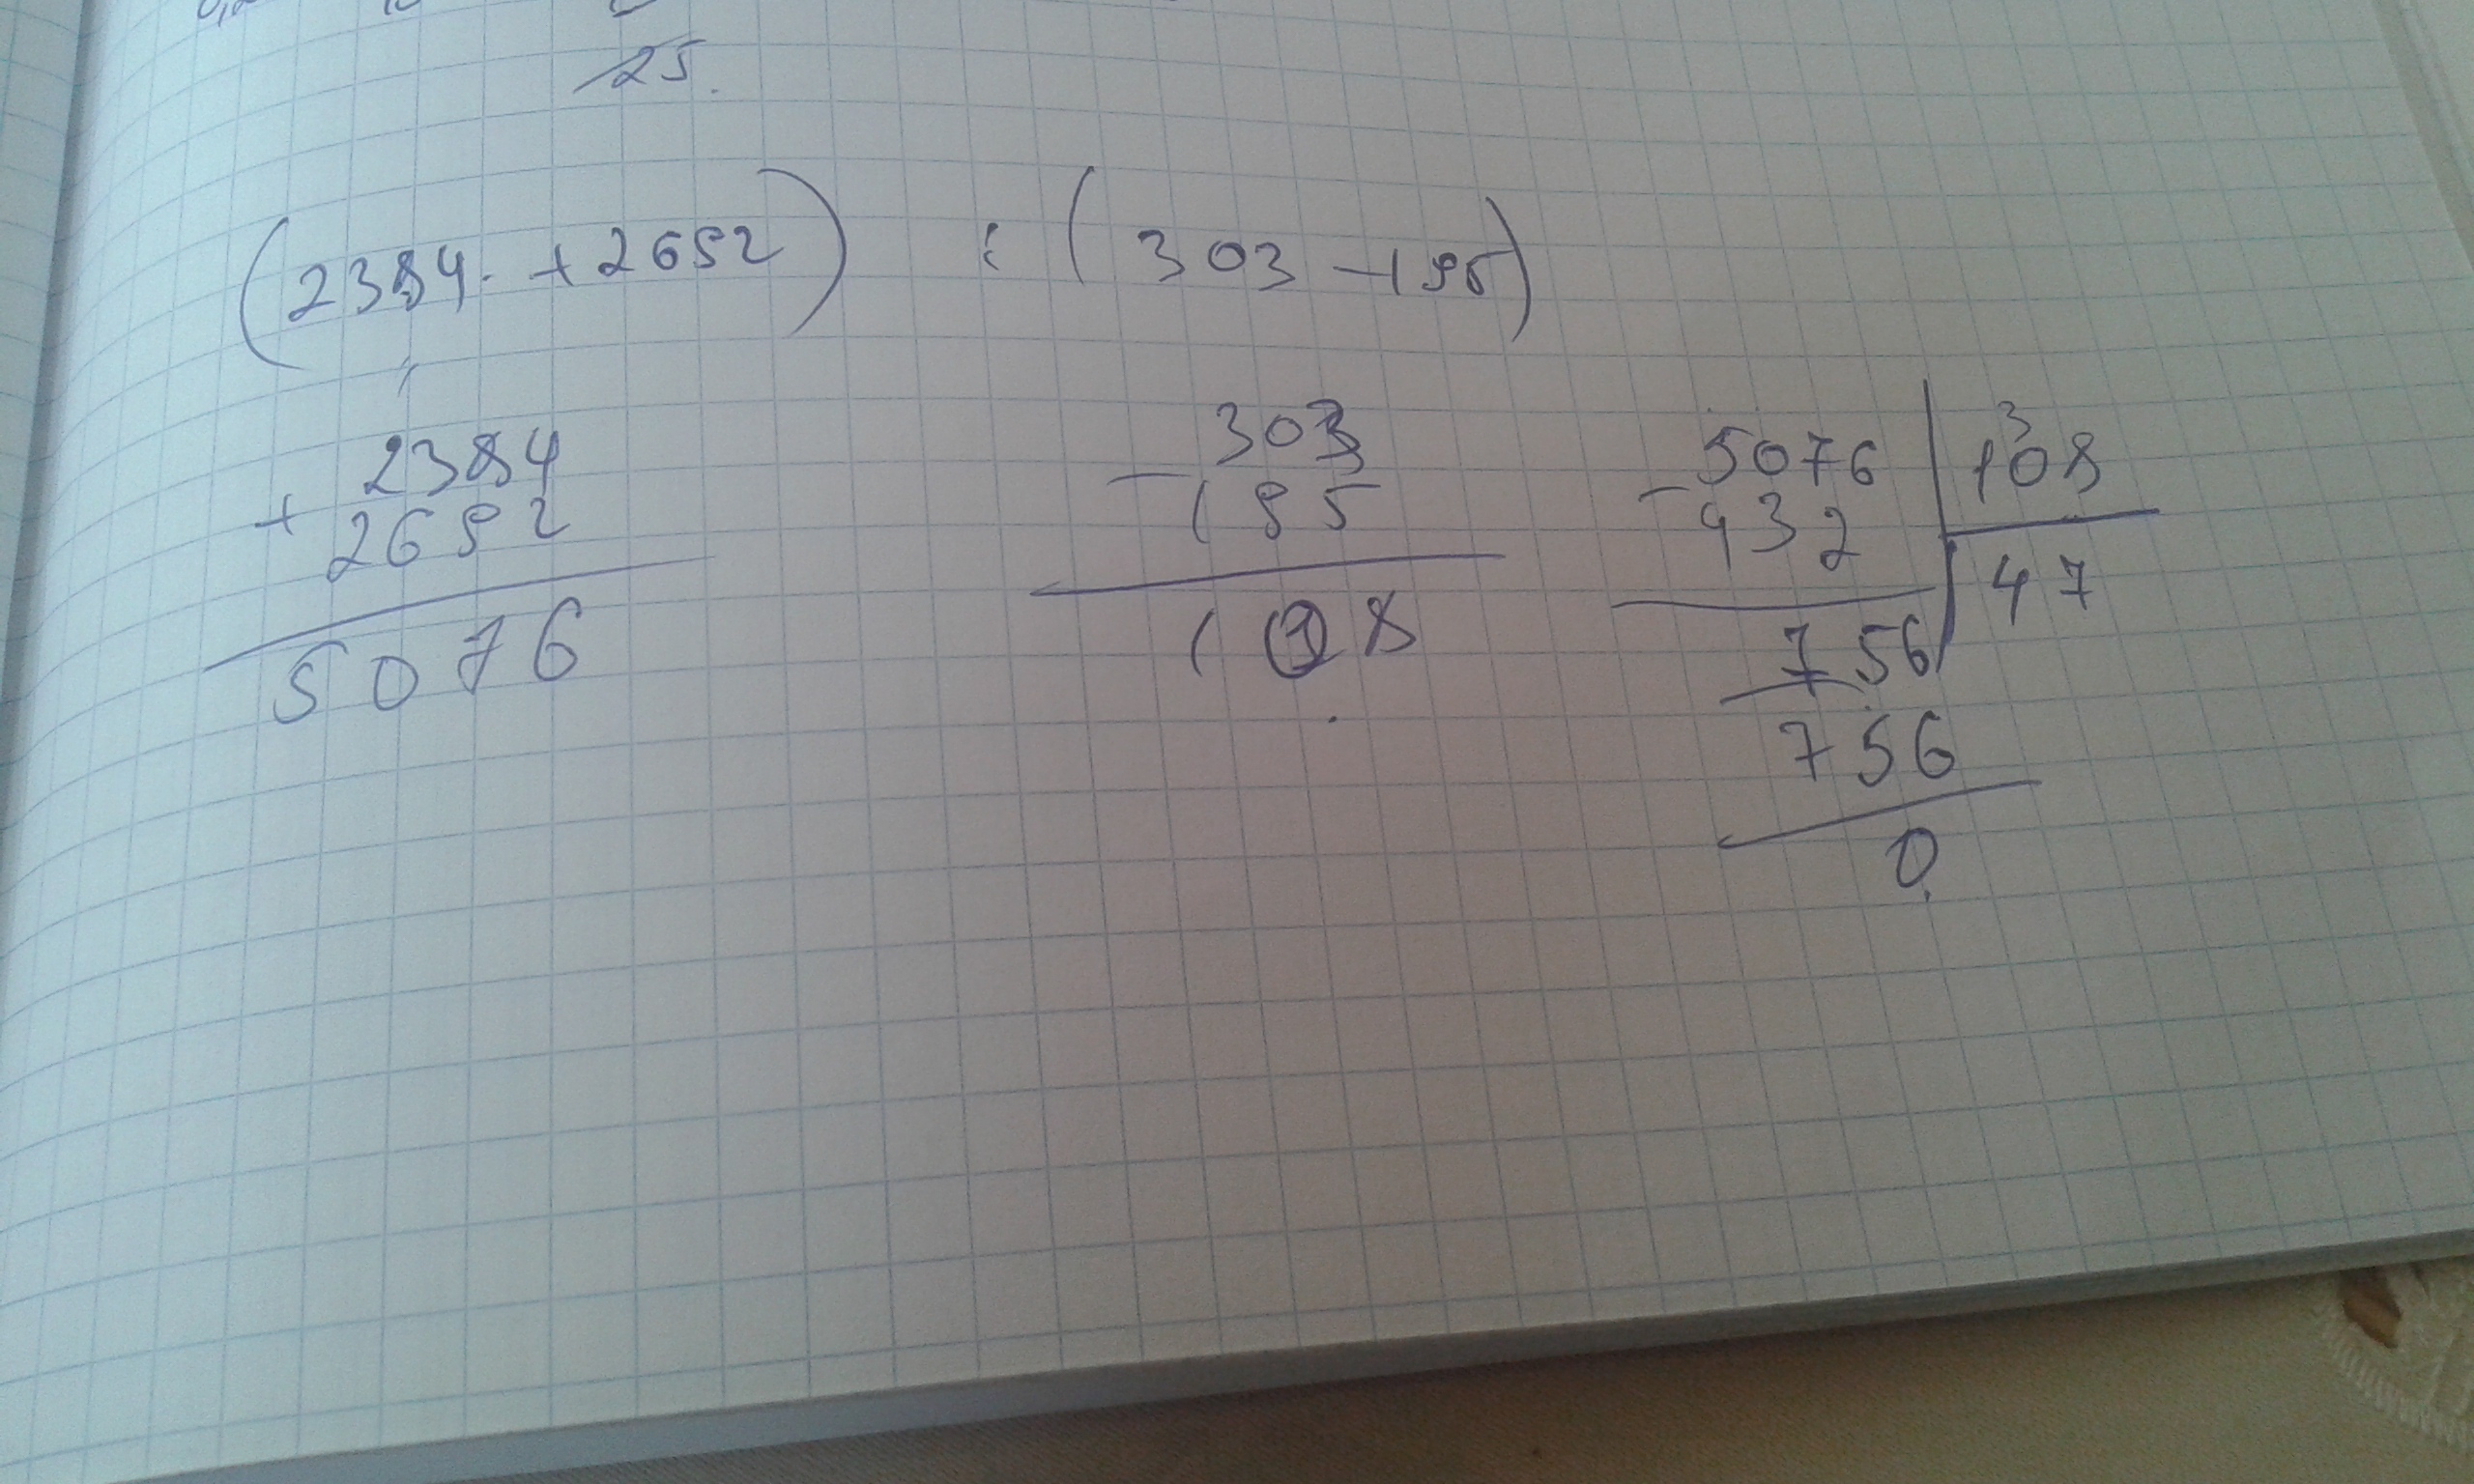 25.
(2384 + 2692) : (303 - 195)
+ 2384
2692
5076
- 303
195
108
- 5076 | 108
3
432 | 47
756
756
0